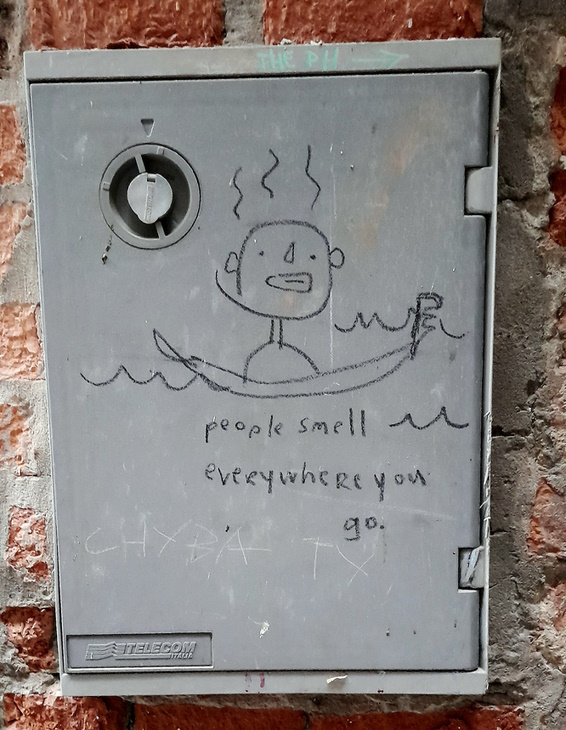 THE PH
people smell
everywhere you
go.
CHYBA TY
TELECOM
ITALIA